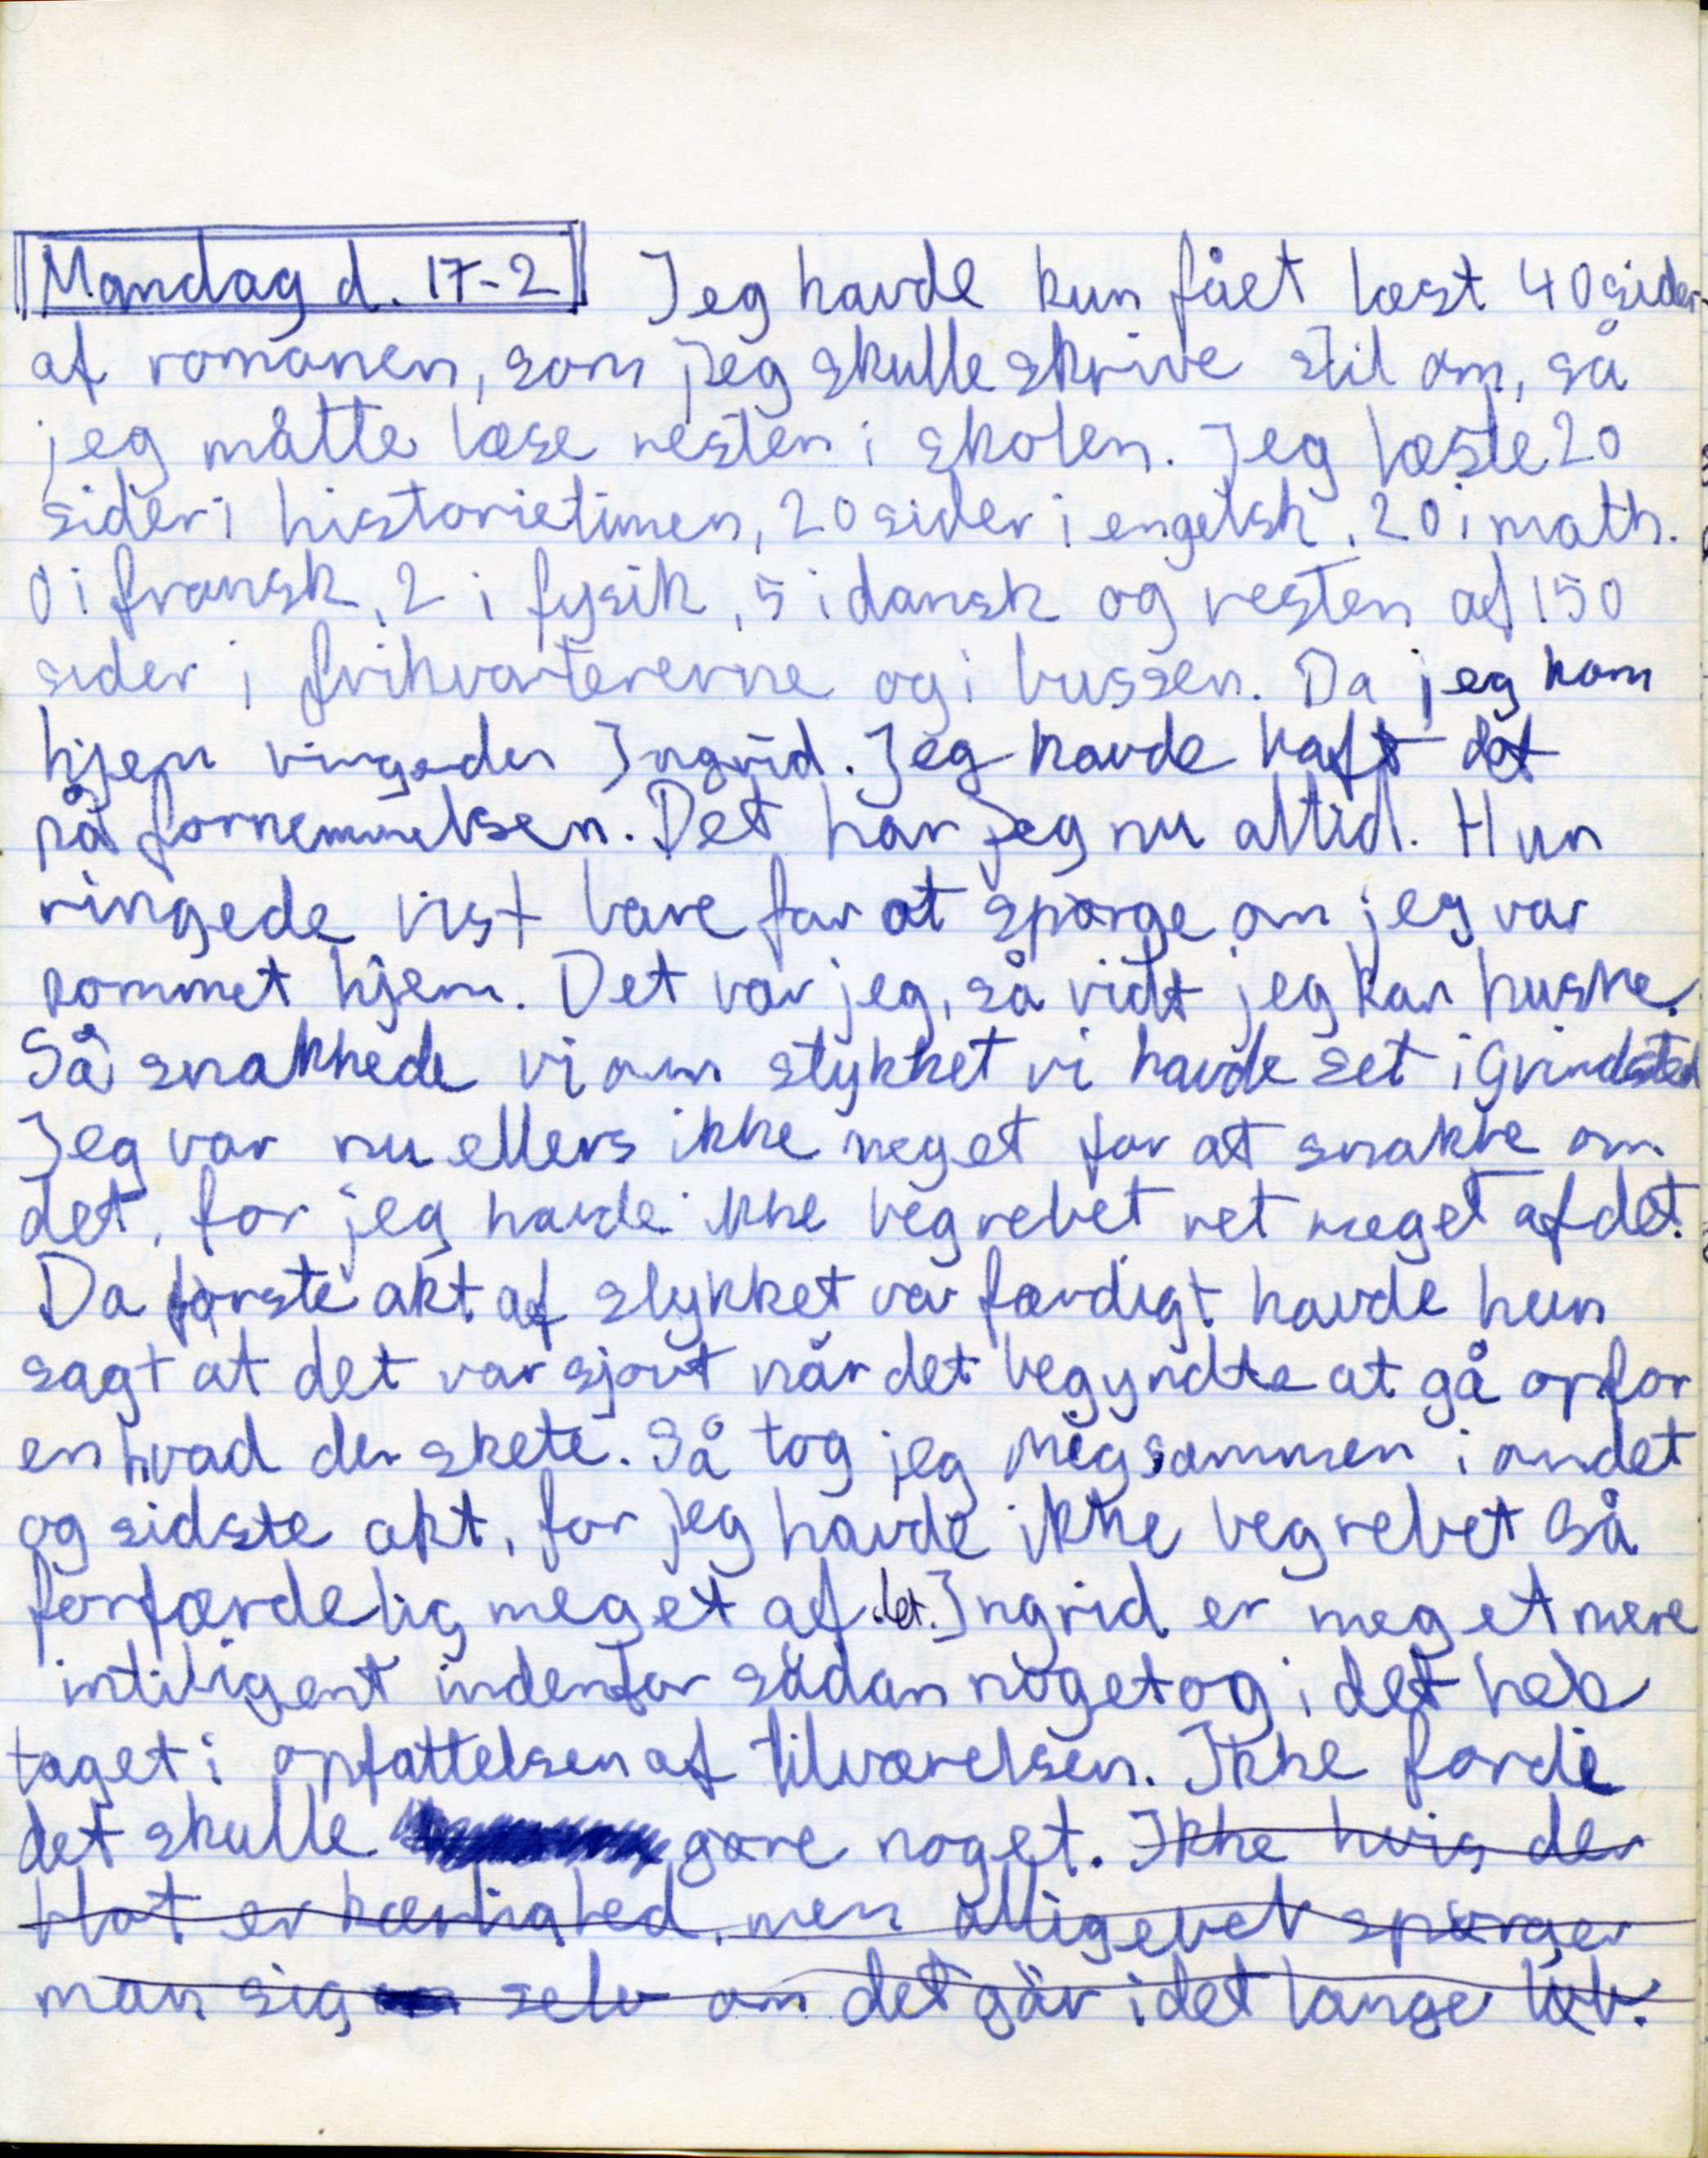 Mandag d. 17-2 Jeg havde kun fået læst 40 sider
af romanen, som jeg skulle skrive stil om, så
jeg måtte læse resten i skolen. Jeg læste 20
sider i historietimen, 20 sider i engelsk, 20 i math.
0 i fransk, 2 i fysik, 5 i dansk og resten af 150
sider i frikvartererne og i bussen. Da jeg kom
hjem ringeder Ingrid. Jeg havde haft det
på fornemmelsen. Det har jeg nu altid. Hun
ringede vist bare for at spørge om jeg var
kommet hjem. Det var jeg, så vidt jeg kan huske.
Så snakkede vi om stykket vi havde set i Grindsted
Jeg var nu ellers ikke meget for at snakke om
det, for jeg havde ikke begrebet ret meget af det.
Da første akt af stykket var færdigt havde hun
sagt at det var sjovt når det begyndte at gå op for
en hvad der skete. Så tog jeg mig sammen i andet
og sidste akt, for jeg havde ikke begrebet så
forfærdelig meget af det. Ingrid er meget mere
intiligent indenfor sådan noget og i det hele
taget i opfattelsen af tilværelsen. Ikke fordi
det skulle gøre noget. Ikke hvis der
blot er kærlighed, men alligevel spørger
man sig selv om det går i det lange løb.